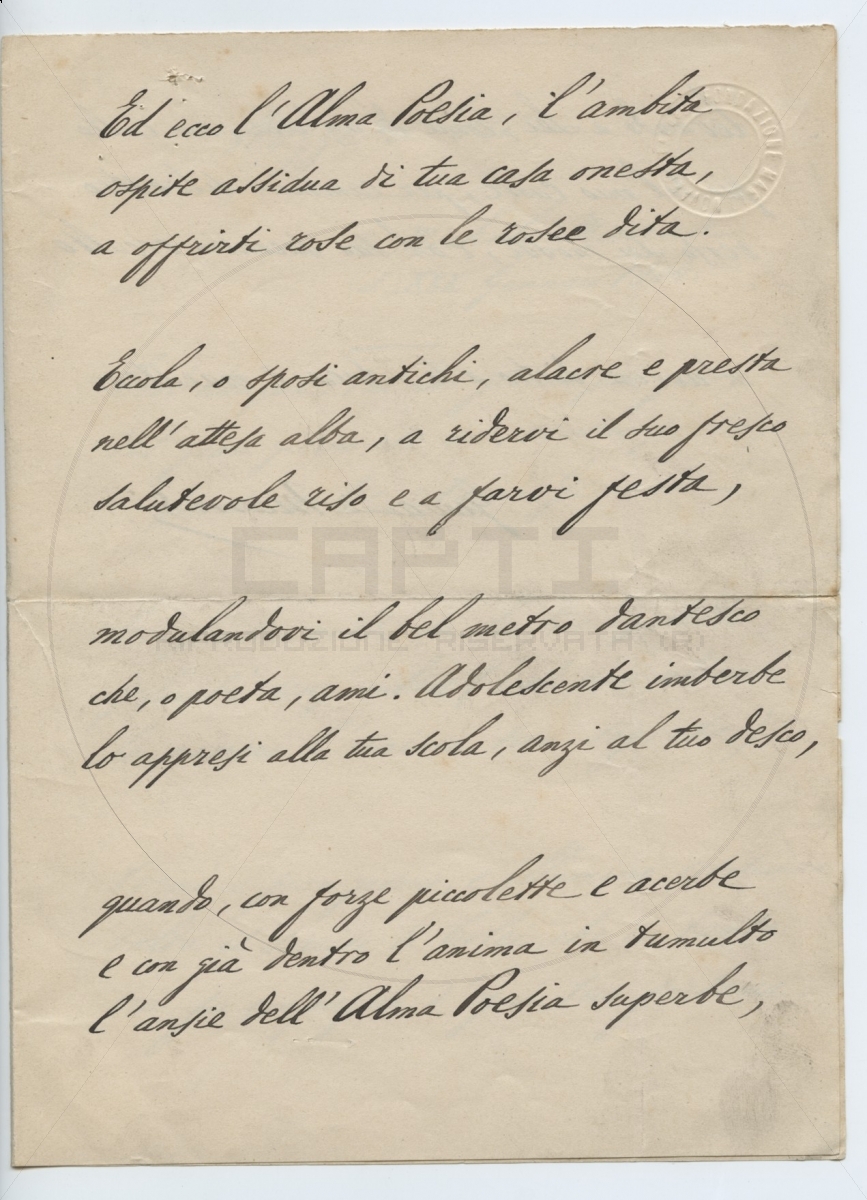 Ed ecco l'Alma Poesia, l'ambita
ospite assidua di tua casa onesta,
a offrirti rose con le rosee dita.
Eccola, o sposi antichi, alacre e presta
nell'attesa alba, a ridervi il suo fresco
salutevole riso e a farvi festa,
CAPTI
modulandovi il bel metro dantesco
RIPRODUZIONE RISERVATA (R)
che, o poeta, ami. Adolescente imberbe
lo appresi alla tua scola, anzi al tuo desco,
quando, con forze piccolette e acerbe
e con già dentro l'anima in tumulto
l'ansie dell'Alma Poesia superbe,